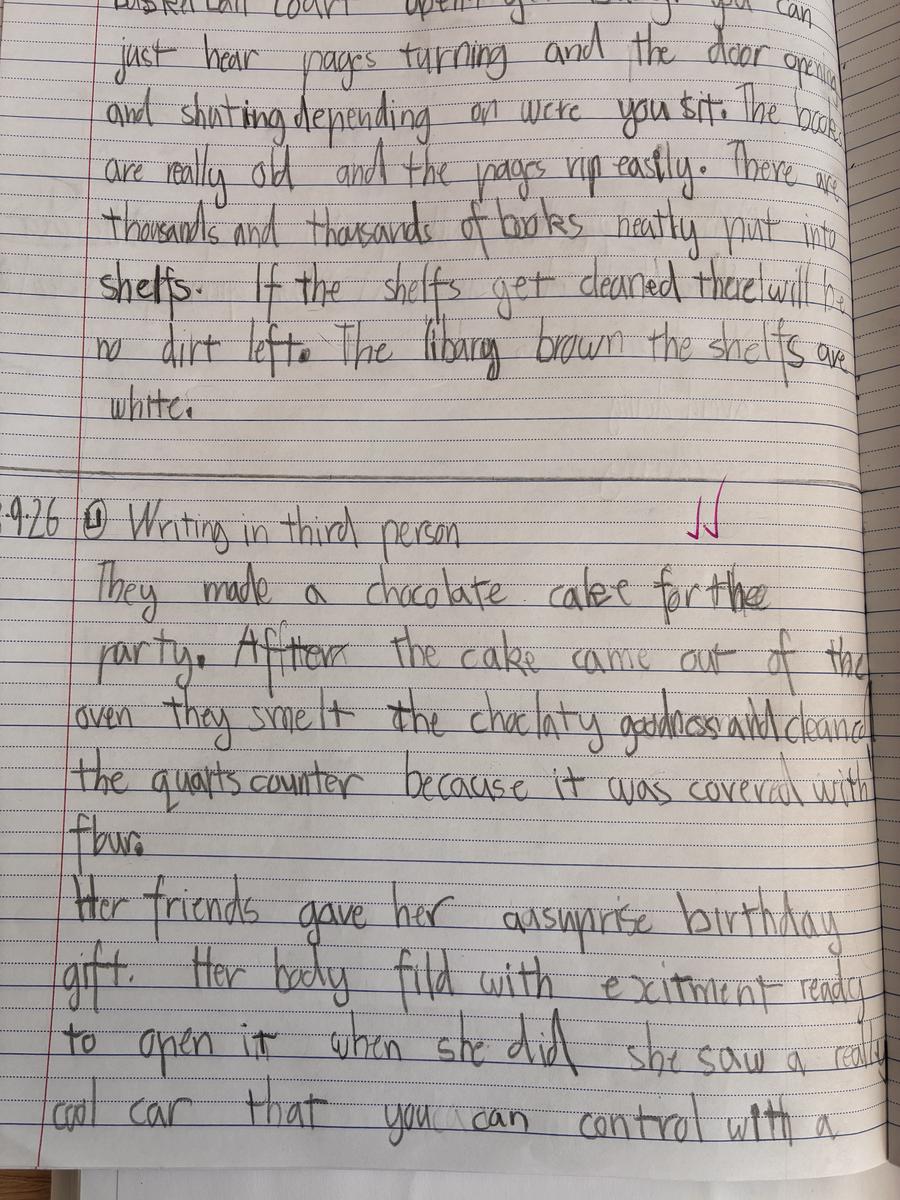 you can
just hear pages turning and the door opening
and shuting depending on were you sit. The books
are really old and the pages rip easily. There are
thousands and thousands of books neatly put into
shelfs. If the shelfs get cleaned there will be
no dirt left. The libary brown the shelfs are
white.
9.26 Writing in third person
They made a chocolate cake for the
party. After the cake came out of the
oven they smelt the choclaty goodness and cleaned
the quarts counter because it was covered with
flour.
Her friends gave her a suprise birthday
gift. Her body fild with exitment ready
to open it when she did she saw a really
cool car that you can control with a